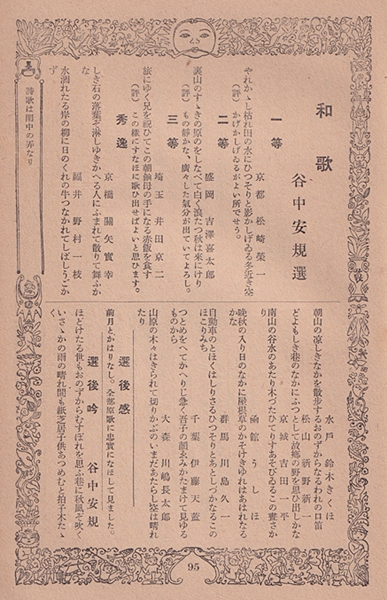 和歌
谷中安規選
一等
京都 松崎榮一
やれかゝし枯れ田の水にひつそりと影かしげゐる冬近き空
(評) かげかしげゐるがよい所でせう。
二等
盛岡 吉澤喜太郎
裏山のすゝきの原のをしなべて白く浪だつ秋は來にけり
(評) もの靜かな、廣々した氣分が出ていてよろし。
三等
埼玉 井田京二
旅にゆく兄を祝ひてこの朝餉母の手になる赤飯を食す
(評) この樣にすなほに歌ひ出せばよいと思ひます。
秀逸
京橋 關矢實幸
しき石の落葉が淋しゆきかへる人にふまれて散りて舞ふかな
福井 野村一枝
水涸れたる岸の柳に日のくれの牛つなかれてしばしうごかず
詩歌は閑中の弄なり
水戸 鈴木きくほ
朝山の凉しきなかを散歩するおのずからなるわれの口笛
松山 新野新一
どよもしき巷のなかにふつとして故郷の野を思ひ出しかな
京城 吉田一平
南山の谷水のあたり木づたひてりすあそびゐるこの靈さかり
函館 うしほ
晩秋の入り日のなかに箱根草のかそけきゆれはあはれなるかな
群馬 川島久一
自動車のとほくはしりさるひつそりとあとしづかなるこのほこりみち
千葉 伊藤天蓋
つとめをへてかへりに急ぐ吾子の顔ゑみかたまけて見ゆるものから
大森 川嶋長太郎
山原の木々はきられて切りかぶのいまだあたらし空は晴れたり
選後感
前月とかはりなし。全部原歌に忠實になほして見ました。
選後吟 谷中安規
ほどけたる世もおのずからむすぼれを思ふ巷に秋風ぞ吹く
いさゝかの雨の晴れ間も紙芝居子供あつめむと拍子木たゝく
95